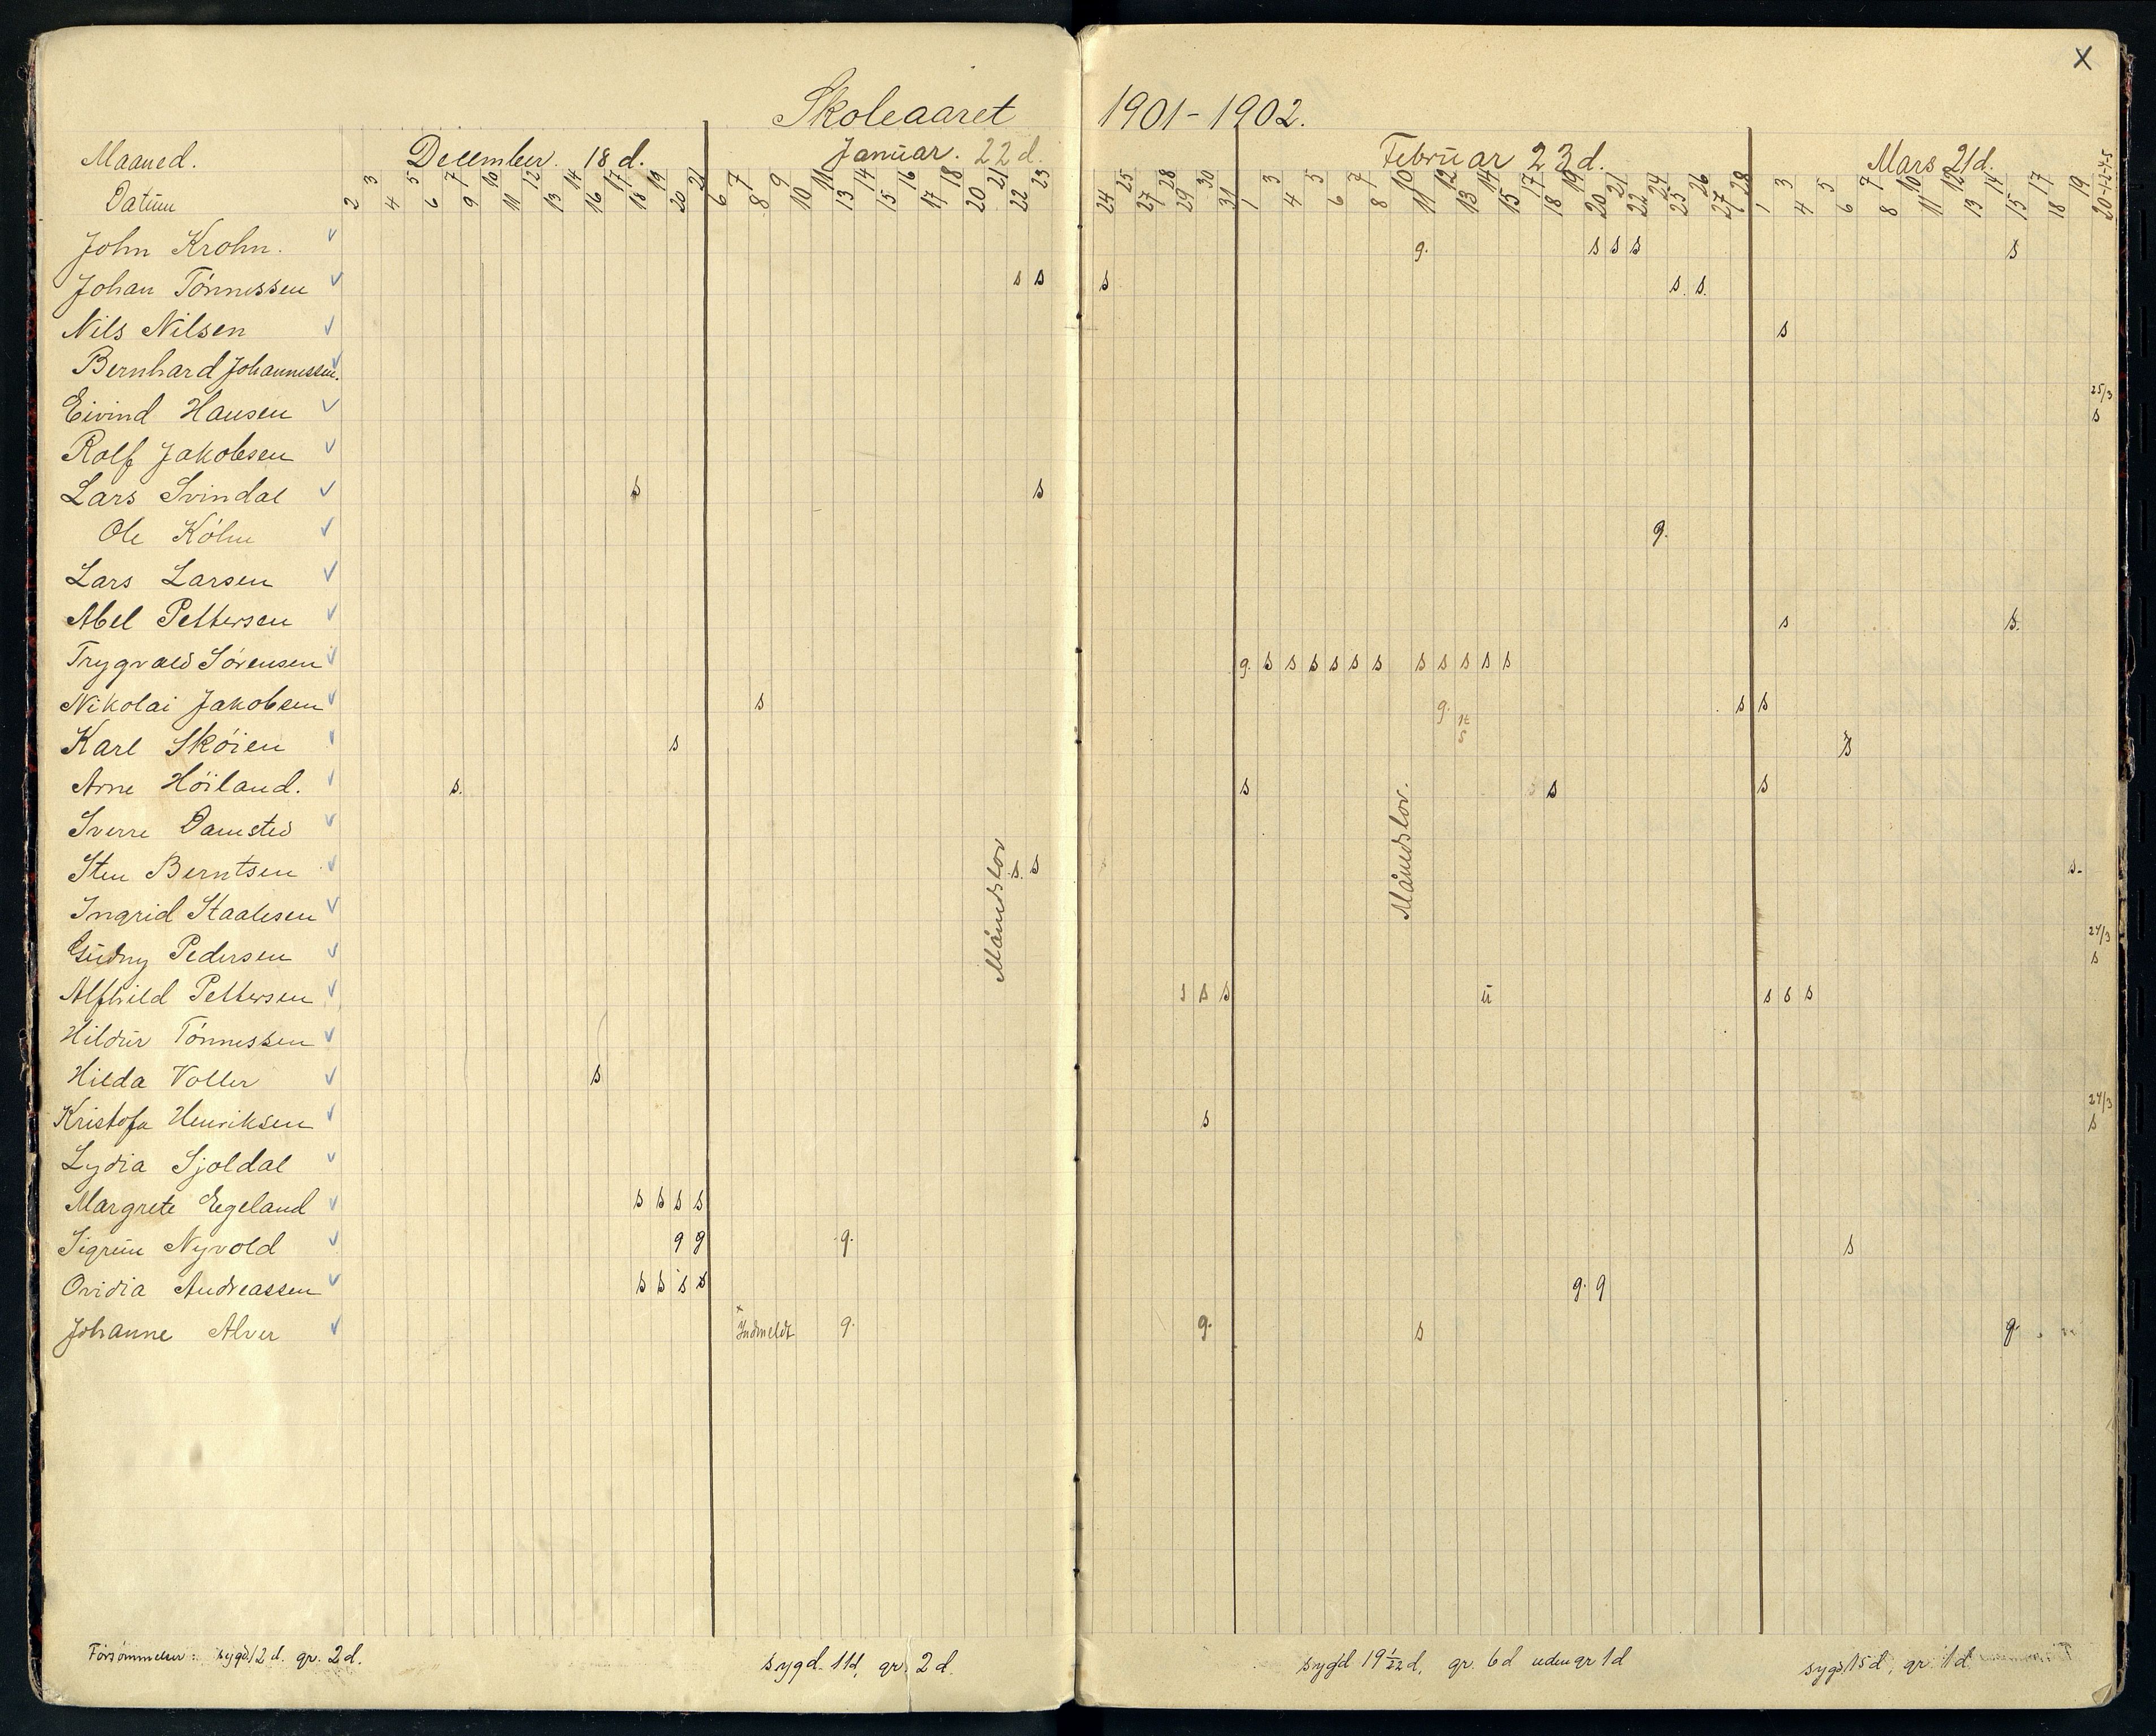 X
Skoleaaret 1901-1902.
Maaned. December. 18 d. Januar. 22 d. Februar 23 d. Mars 21 d.
Datum 2 3 4 5 6 7 9 10 11 12 13 14 16 17 18 19 20 21 6 7 8 9 10 11 13 14 15 16 17 18 20 21 22 23 24 25 27 28 29 30 31 1 3 4 5 6 7 8 10 11 12 13 14 15 17 18 19 20 21 22 24 25 26 27 28 1 3 4 5 6 7 8 10 11 12 13 14 15 17 18 19 20-1-2-4-5
John Krohn. g. s s s s
Johan Tönnessen s s s s. s.
Nils Nilsen s
Bernhard Johannessen.
25/3
Eivind Hansen s
Rolf Jakobsen
Lars Svindal s s
Ole Köhn g.
Lars Larsen
Abel Pettersen s s.
Trygvald Sörensen g. s s s s s s s s s s s
Nikolai Jakobsen s g. s s
1t
Karl Sköien s s s
Arne Höiland. s. s s s
Sverre Damsted
Sten Berntsen s. s s.
Månedslov
Månedslov.
Ingrid Staalesen
24/3
Gudny Pedersen s
Alfhild Pettersen s s s u s s s
Hildur Tönnessen
Hilda Voller s
24/3
Kristofa Henriksen s s
Lydia Sjoldal
Margrete Egeland s s s s
Sigrun Nyvold g g g. s
Ovidia Andreassen s s s s g. g
Johanne Alver Indmeldt g. g. s g.
Forsömmelser: sygd 12 d. gr. 2 d. sygd. 11d, gr. 2 d. sygd 19 1/22 d, gr. 6 d uden gr 1 d sygd 15 d, gr. 1 d